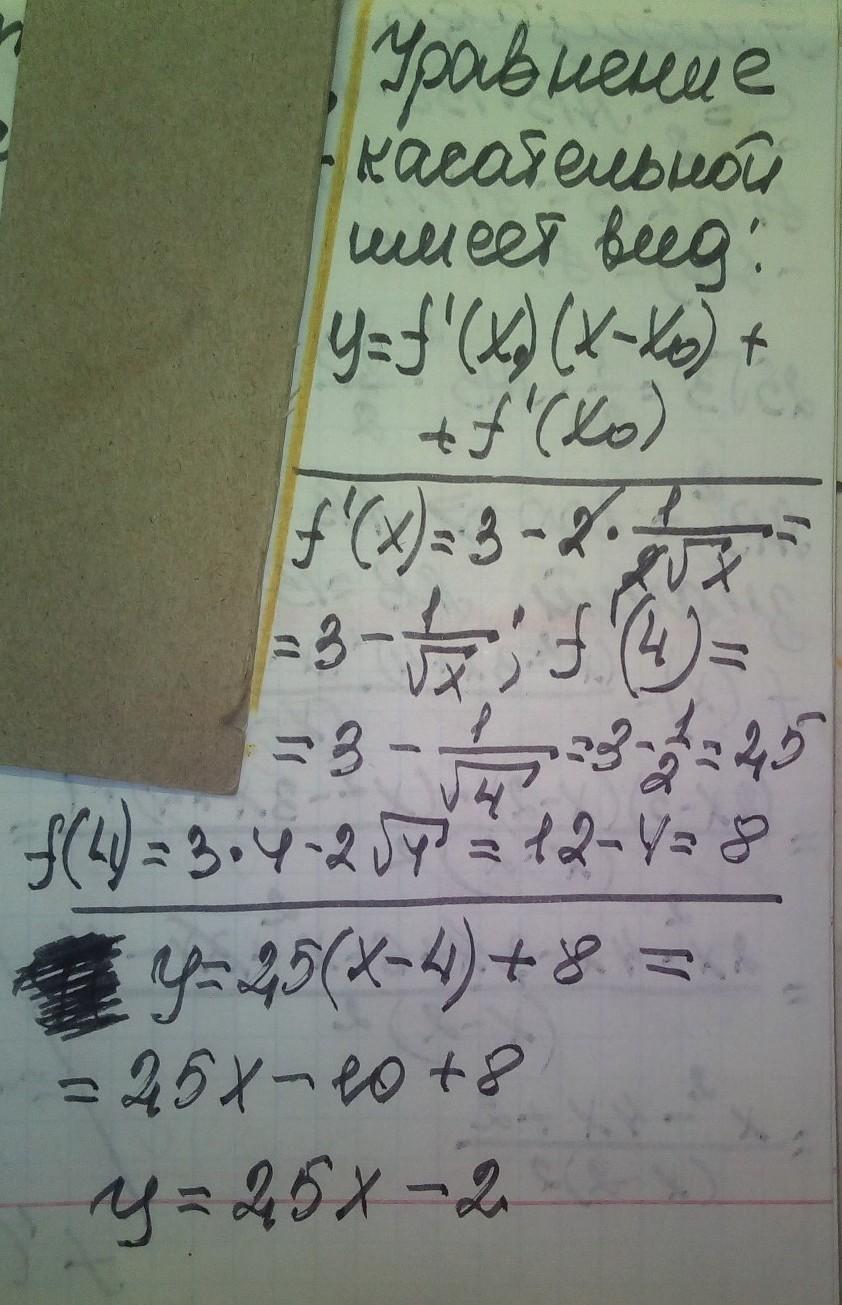 Уравнение
касательной
имеет вид:
y=f'(x₀)(x-x₀)+
+f'(x₀)
f'(x)=3-2·1/(2√x)=
=3-1/√x; f'(4)=
=3-1/√4=3-1/2=2,5
f(4)=3·4-2√4=12-4=8
y=2,5(x-4)+8=
=2,5x-10+8
y=2,5x-2